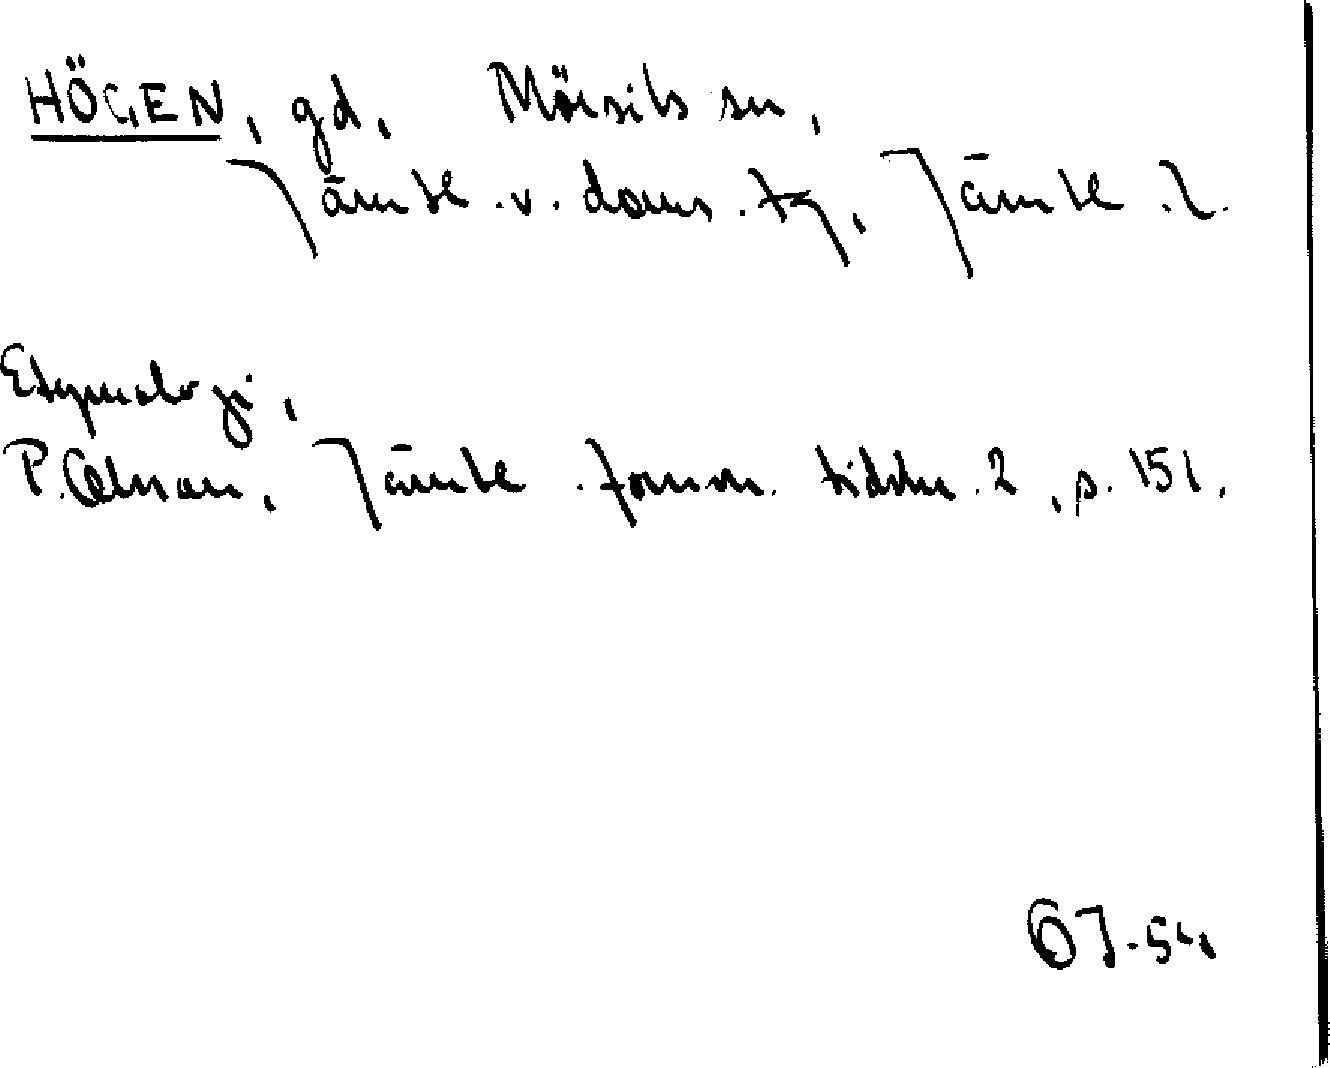 HÖGEN, gd, Mörsils sn,
Jämtl. v. doms. tg, Jämtl. l.
Etymologi,
P. Olsson, Jämtl. fornm. tidskr. 2, p. 151.